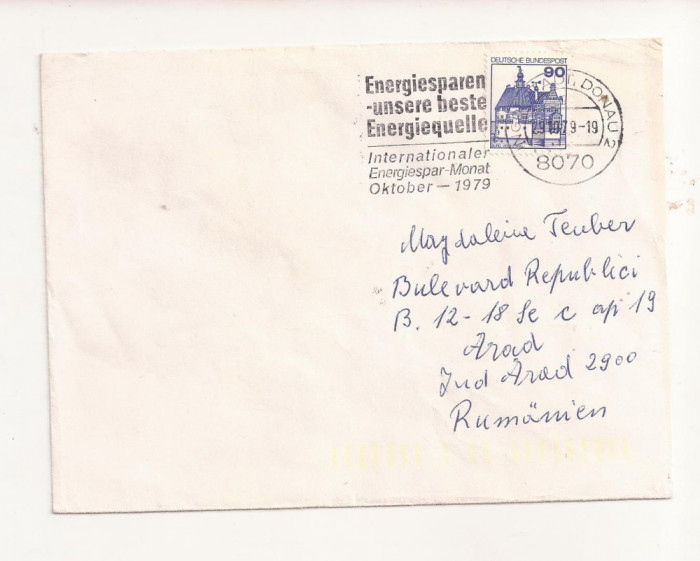 DEUTSCHE BUNDESPOST
90
Energiesparen
-unsere beste
Energiequelle
Internationaler
Energiespar-Monat
Oktober – 1979
DONAU 2
-19
8070
Magdaleina Teuber
Bulevard Republici
B. 12-18 Se c ap 19
Arad
Jud Arad 2900
Rumänien